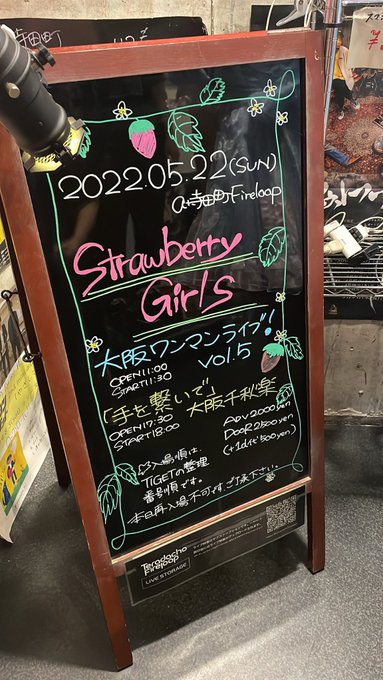 2022.05.22(SUN)
@寺田町Fireloop
Strawberry
Girls
大阪ワンマンライブ!
vol.5
OPEN11:00
START11:30
「手を繋いで」大阪千秋楽
OPEN17:30
START18:00
ADV2000yen
DOOR2500yen
(+1d代500yen)
入場順は、
TIGETの整理
番号順です。
本日再入場不可です。ご了承下さい。
Teradacho
Fireloop
LIVE STORAGE